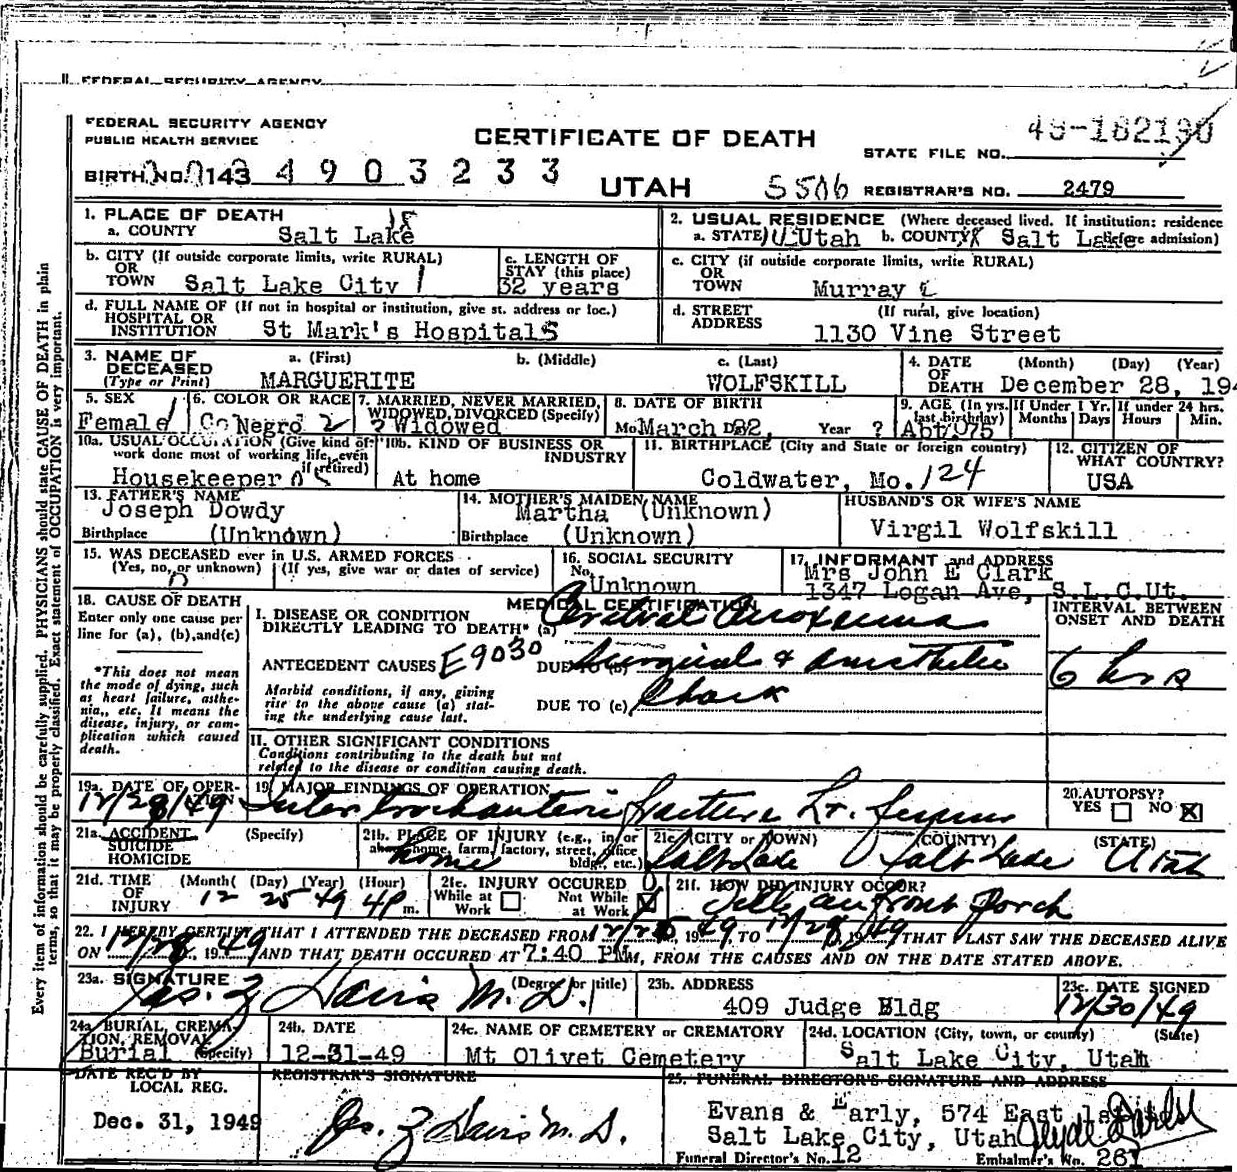 FEDERAL SECURITY AGENCY
FEDERAL SECURITY AGENCY
PUBLIC HEALTH SERVICE
CERTIFICATE OF DEATH
STATE FILE NO. 49-182190
BIRTH NO. 143 4903233
UTAH
REGISTRAR'S NO. 2479
1. PLACE OF DEATH
a. COUNTY Salt Lake
2. USUAL RESIDENCE (Where deceased lived. If institution: residence before admission)
a. STATE Utah b. COUNTY Salt Lake
b. CITY (If outside corporate limits, write RURAL)
OR
TOWN Salt Lake City
c. LENGTH OF
STAY (this place)
32 years
c. CITY (if outside corporate limits, write RURAL)
OR
TOWN Murray
d. FULL NAME OF (If not in hospital or institution, give st. address or loc.)
HOSPITAL OR
INSTITUTION St Mark's Hospital
d. STREET (If rural, give location)
ADDRESS 1130 Vine Street
3. NAME OF DECEASED
(Type or Print)
a. (First) b. (Middle) c. (Last)
MARGUERITE WOLFSKILL
4. DATE OF DEATH (Month) (Day) (Year)
December 28, 194
5. SEX
Female
6. COLOR OR RACE
Negro
7. MARRIED, NEVER MARRIED,
WIDOWED, DIVORCED (Specify)
Widowed
8. DATE OF BIRTH
Mo. March D 32, Year ?
9. AGE (In yrs. last birthday)
If Under 1 Yr. Months Days
If under 24 hrs. Hours Min.
10a. USUAL OCCUPATION (Give kind of
work done most of working life, even
if retired)
Housekeeper
10b. KIND OF BUSINESS OR
INDUSTRY
At home
11. BIRTHPLACE (City and State or foreign country)
Coldwater, Mo. 124
12. CITIZEN OF
WHAT COUNTRY?
USA
13. FATHER'S NAME
Joseph Dowdy
Birthplace (Unknown)
14. MOTHER'S MAIDEN NAME
Martha (Unknown)
Birthplace (Unknown)
HUSBAND'S OR WIFE'S NAME
Virgil Wolfskill
15. WAS DECEASED ever in U.S. ARMED FORCES
(Yes, no, or unknown) (If yes, give war or dates of service)
16. SOCIAL SECURITY
No. Unknown
17. INFORMANT and ADDRESS
Mrs John E Clark
1347 Logan Ave, S.L.C.Ut.
18. CAUSE OF DEATH
Enter only one cause per
line for (a), (b), and (c)
*This does not mean
the mode of dying, such
as heart failure, asthe-
nia, etc. It means the
disease, injury, or com-
plication which caused
death.
MEDICAL CERTIFICATION
I. DISEASE OR CONDITION
DIRECTLY LEADING TO DEATH* (a) Cerebral Anoxemia
ANTECEDENT CAUSES E9030 DUE TO (b) Surgical & Anesthetic
Morbid conditions, if any, giving
rise to the above cause (a) stat-
ing the underlying cause last.
DUE TO (c) Shock
INTERVAL BETWEEN
ONSET AND DEATH
6 hrs
II. OTHER SIGNIFICANT CONDITIONS
Conditions contributing to the death but not
related to the disease or condition causing death.
19a. DATE OF OPER-
ATION
12/28/49
19. MAJOR FINDINGS OF OPERATION
Inter trochanteric fracture Lr. femur
20. AUTOPSY?
YES NO X
21a. ACCIDENT (Specify)
SUICIDE
HOMICIDE
21b. PLACE OF INJURY (e.g., in or
about home, farm, factory, street, office
bldg., etc.)
home
21c. (CITY or TOWN) (COUNTY) (STATE)
Salt Lake Salt Lake Utah
21d. TIME OF INJURY (Month) (Day) (Year) (Hour)
12 25 49 4P m.
21e. INJURY OCCURED
While at Work
Not While at Work X
21f. HOW DID INJURY OCCUR?
Fell on front Porch
22. I HEREBY CERTIFY THAT I ATTENDED THE DECEASED FROM 12/25, 1949 TO 12/28, 1949 THAT I LAST SAW THE DECEASED ALIVE
ON 12/28, 1949 AND THAT DEATH OCCURED AT 7:40 PM, FROM THE CAUSES AND ON THE DATE STATED ABOVE.
23a. SIGNATURE (Degree or title)
Jas. Z Davis M.D.
23b. ADDRESS
409 Judge Bldg
23c. DATE SIGNED
12/30/49
24a. BURIAL, CREMA-
TION, REMOVAL
(Specify)
Burial
24b. DATE
12-31-49
24c. NAME OF CEMETERY or CREMATORY
Mt Olivet Cemetery
24d. LOCATION (City, town, or county) (State)
Salt Lake City, Utah
DATE REC'D BY
LOCAL REG.
Dec. 31, 1949
REGISTRAR'S SIGNATURE
Jas. Z Davis M.D.
25. FUNERAL DIRECTOR'S SIGNATURE AND ADDRESS
Evans & Early, 574 East
Salt Lake City, Utah
Funeral Director's No. 12 Embalmer's No. 267
Every item of information should be carefully supplied. PHYSICIANS should state CAUSE OF DEATH in plain
terms, so that it may be properly classified. Exact statement of OCCUPATION is very important.